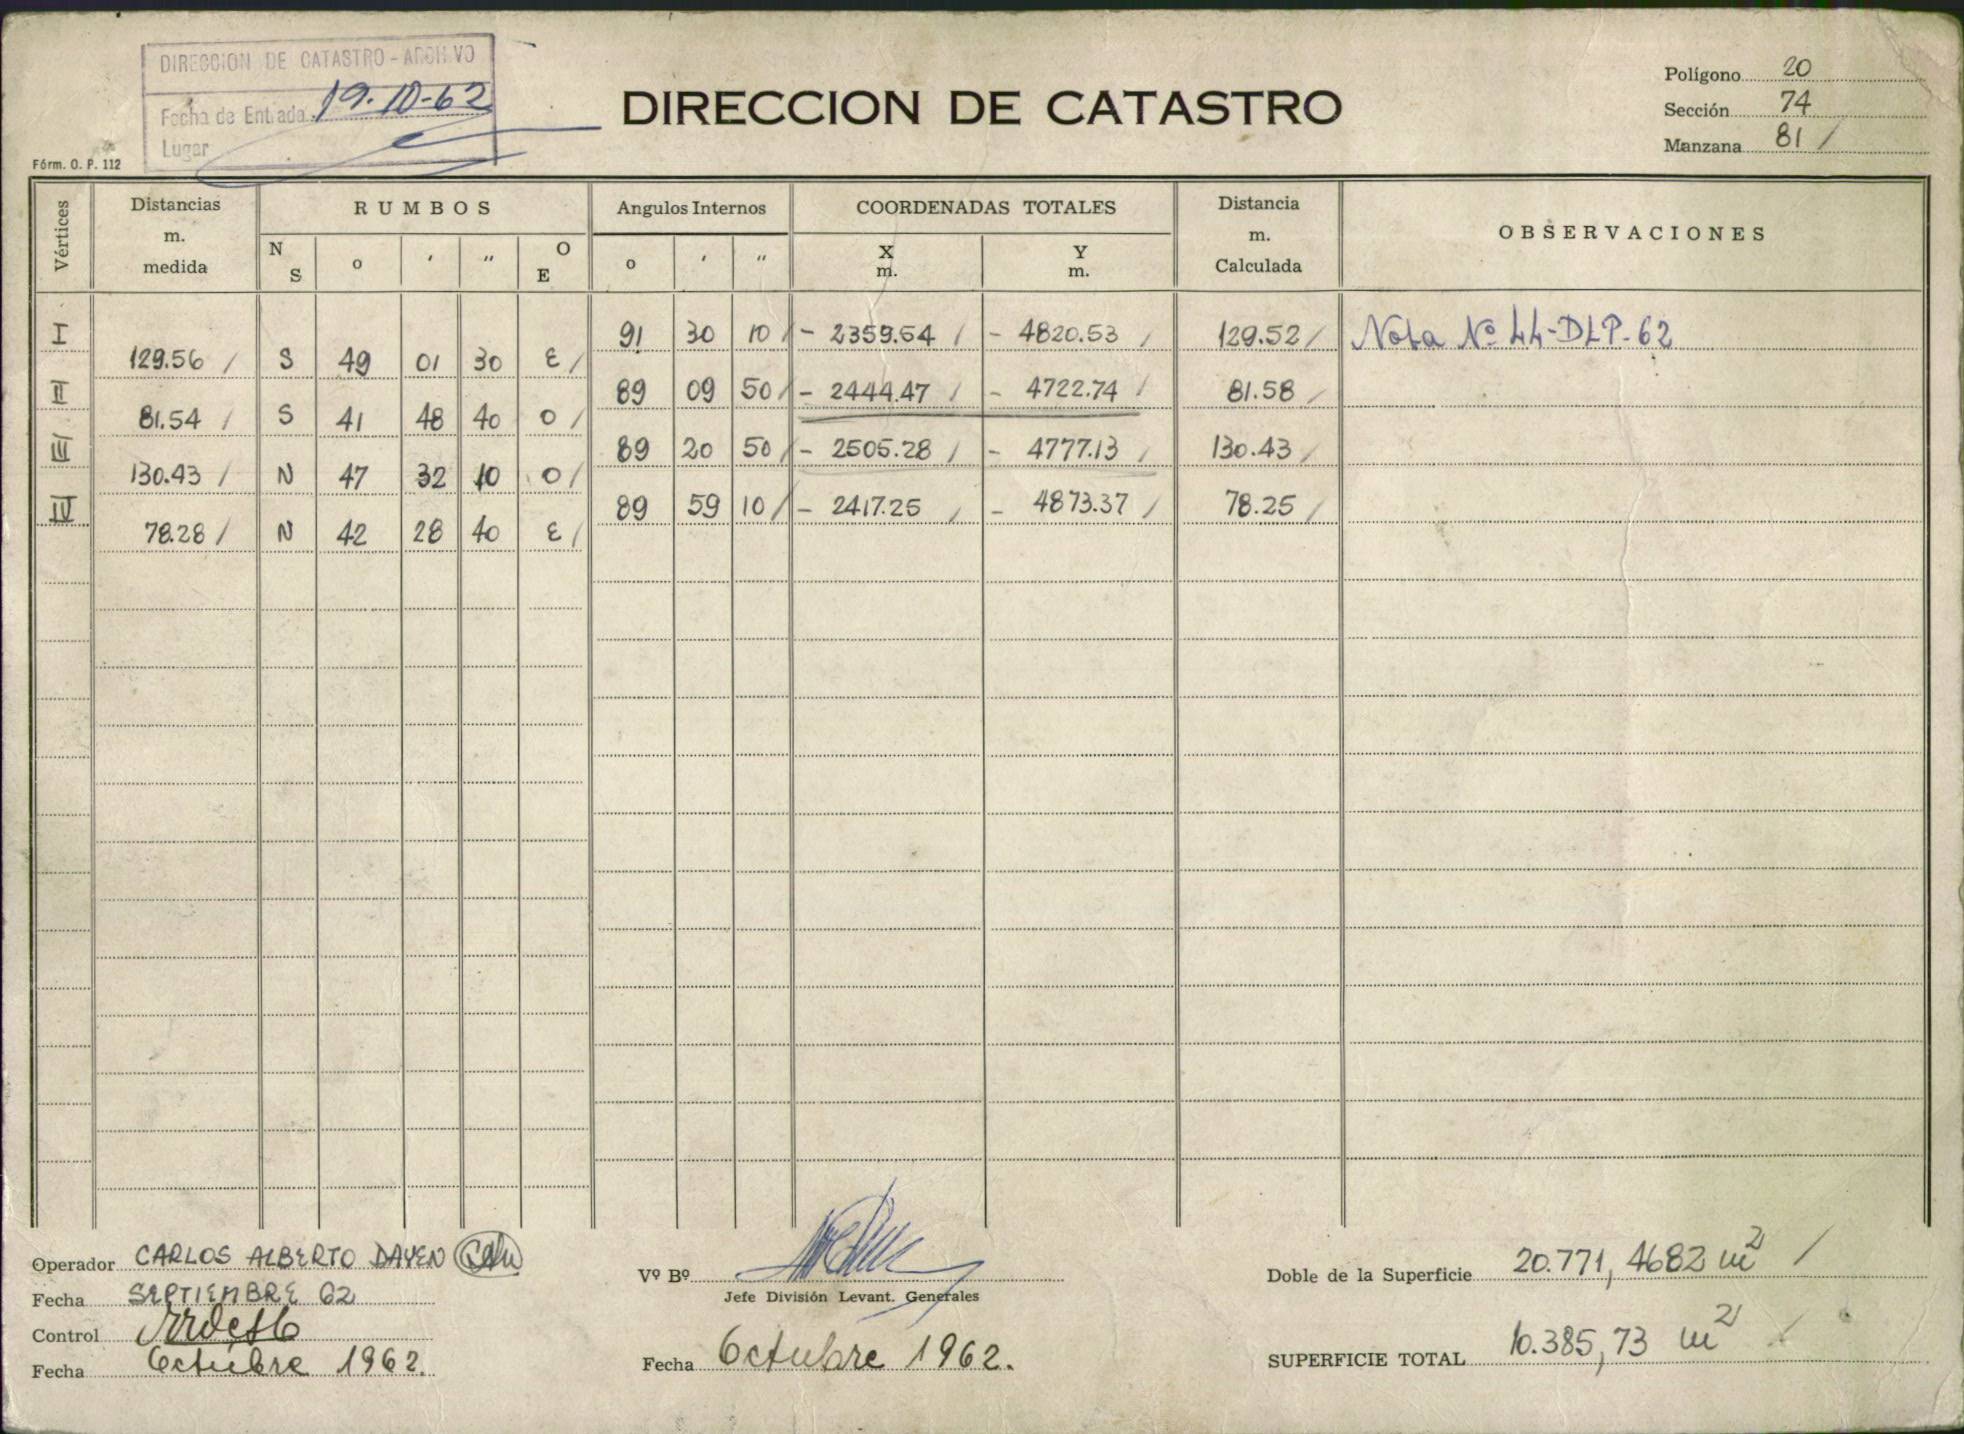 DIRECCION DE CATASTRO - ARCHIVO
Fecha de Entrada 19-10-62
Lugar
Fórm. O. P. 112
DIRECCION DE CATASTRO
Polígono 20
Sección 74
Manzana 81 /
Vértices Distancias m. medida RUMBOS Angulos Internos COORDENADAS TOTALES Distancia m. Calculada OBSERVACIONES
N S o ′ ″ O E o ′ ″ X m. Y m.
I 91 30 10 / - 2359.54 / - 4820.53 / 129.52 / Nota Nº 44-DLP-62
129.56 / S 49 01 30 E /
II 89 09 50 / - 2444.47 / - 4722.74 / 81.58 /
81.54 / S 41 48 40 O /
III 89 20 50 / - 2505.28 / - 4777.13 / 130.43 /
130.43 / N 47 32 10 O /
IV 89 59 10 / - 2417.25 / - 4873.37 / 78.25 /
78.28 / N 42 28 40 E /
Operador CARLOS ALBERTO DAVEN
Fecha SEPTIEMBRE 62
Control
Fecha Octubre 1962.
Vº Bº
Jefe División Levant. Generales
Fecha Octubre 1962.
Doble de la Superficie 20.771,4682 m² /
SUPERFICIE TOTAL 10.385,73 m² /